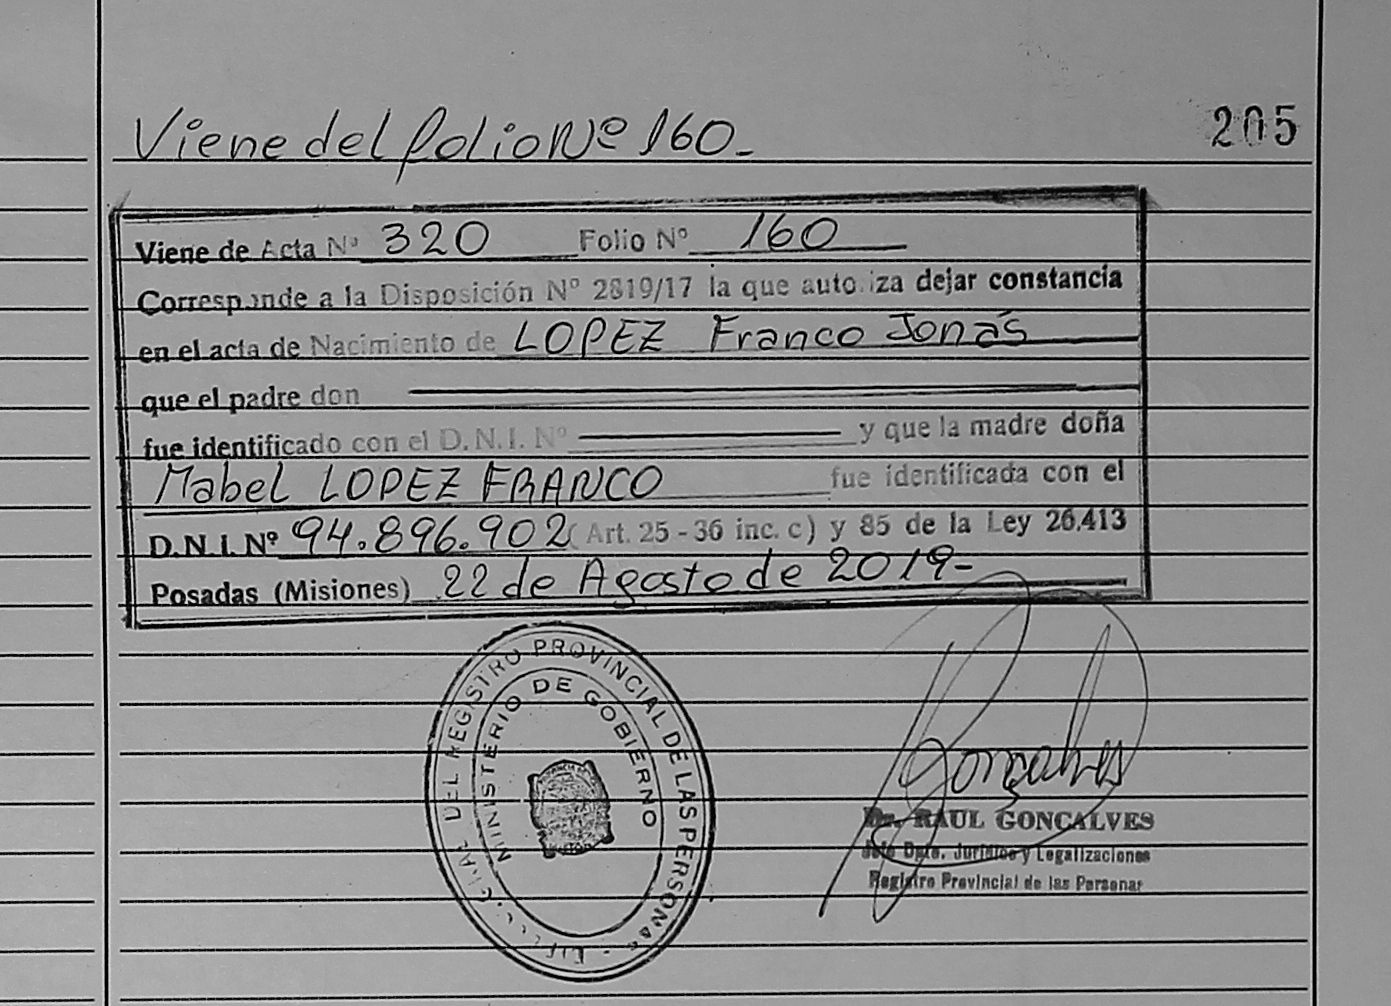 Viene del folio Nº 160_
205
Viene de Acta Nº 320 Folio Nº 160
Corresponde a la Disposición Nº 2819/17 la que autoriza dejar constancia
en el acta de Nacimiento de LOPEZ Franco Jonás
que el padre don
fue identificado con el D.N.I. Nº y que la madre doña
Mabel LOPEZ FRANCO fue identificada con el
D.N.I. Nº 94.896.902 (Art. 25 - 36 inc. c) y 85 de la Ley 26.413
Posadas (Misiones) 22 de Agosto de 2019-
DEL REGISTRO PROVINCIAL DE LAS PERSONAS
MINISTERIO DE GOBIERNO
Gonçalves
Dr. RAUL GONCALVES
Jefe Dpto. Jurídico y Legalizaciones
Registro Provincial de las Personas